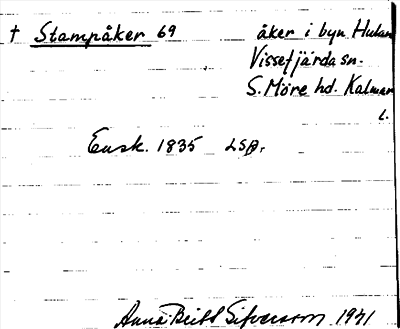 † Stampåker 69 åker i byn Hulan
Vissefjärda sn.
S. Möre hd. Kalmar
l.
Ensk. 1835 LSA.
Anna Britt Sifversson 1941